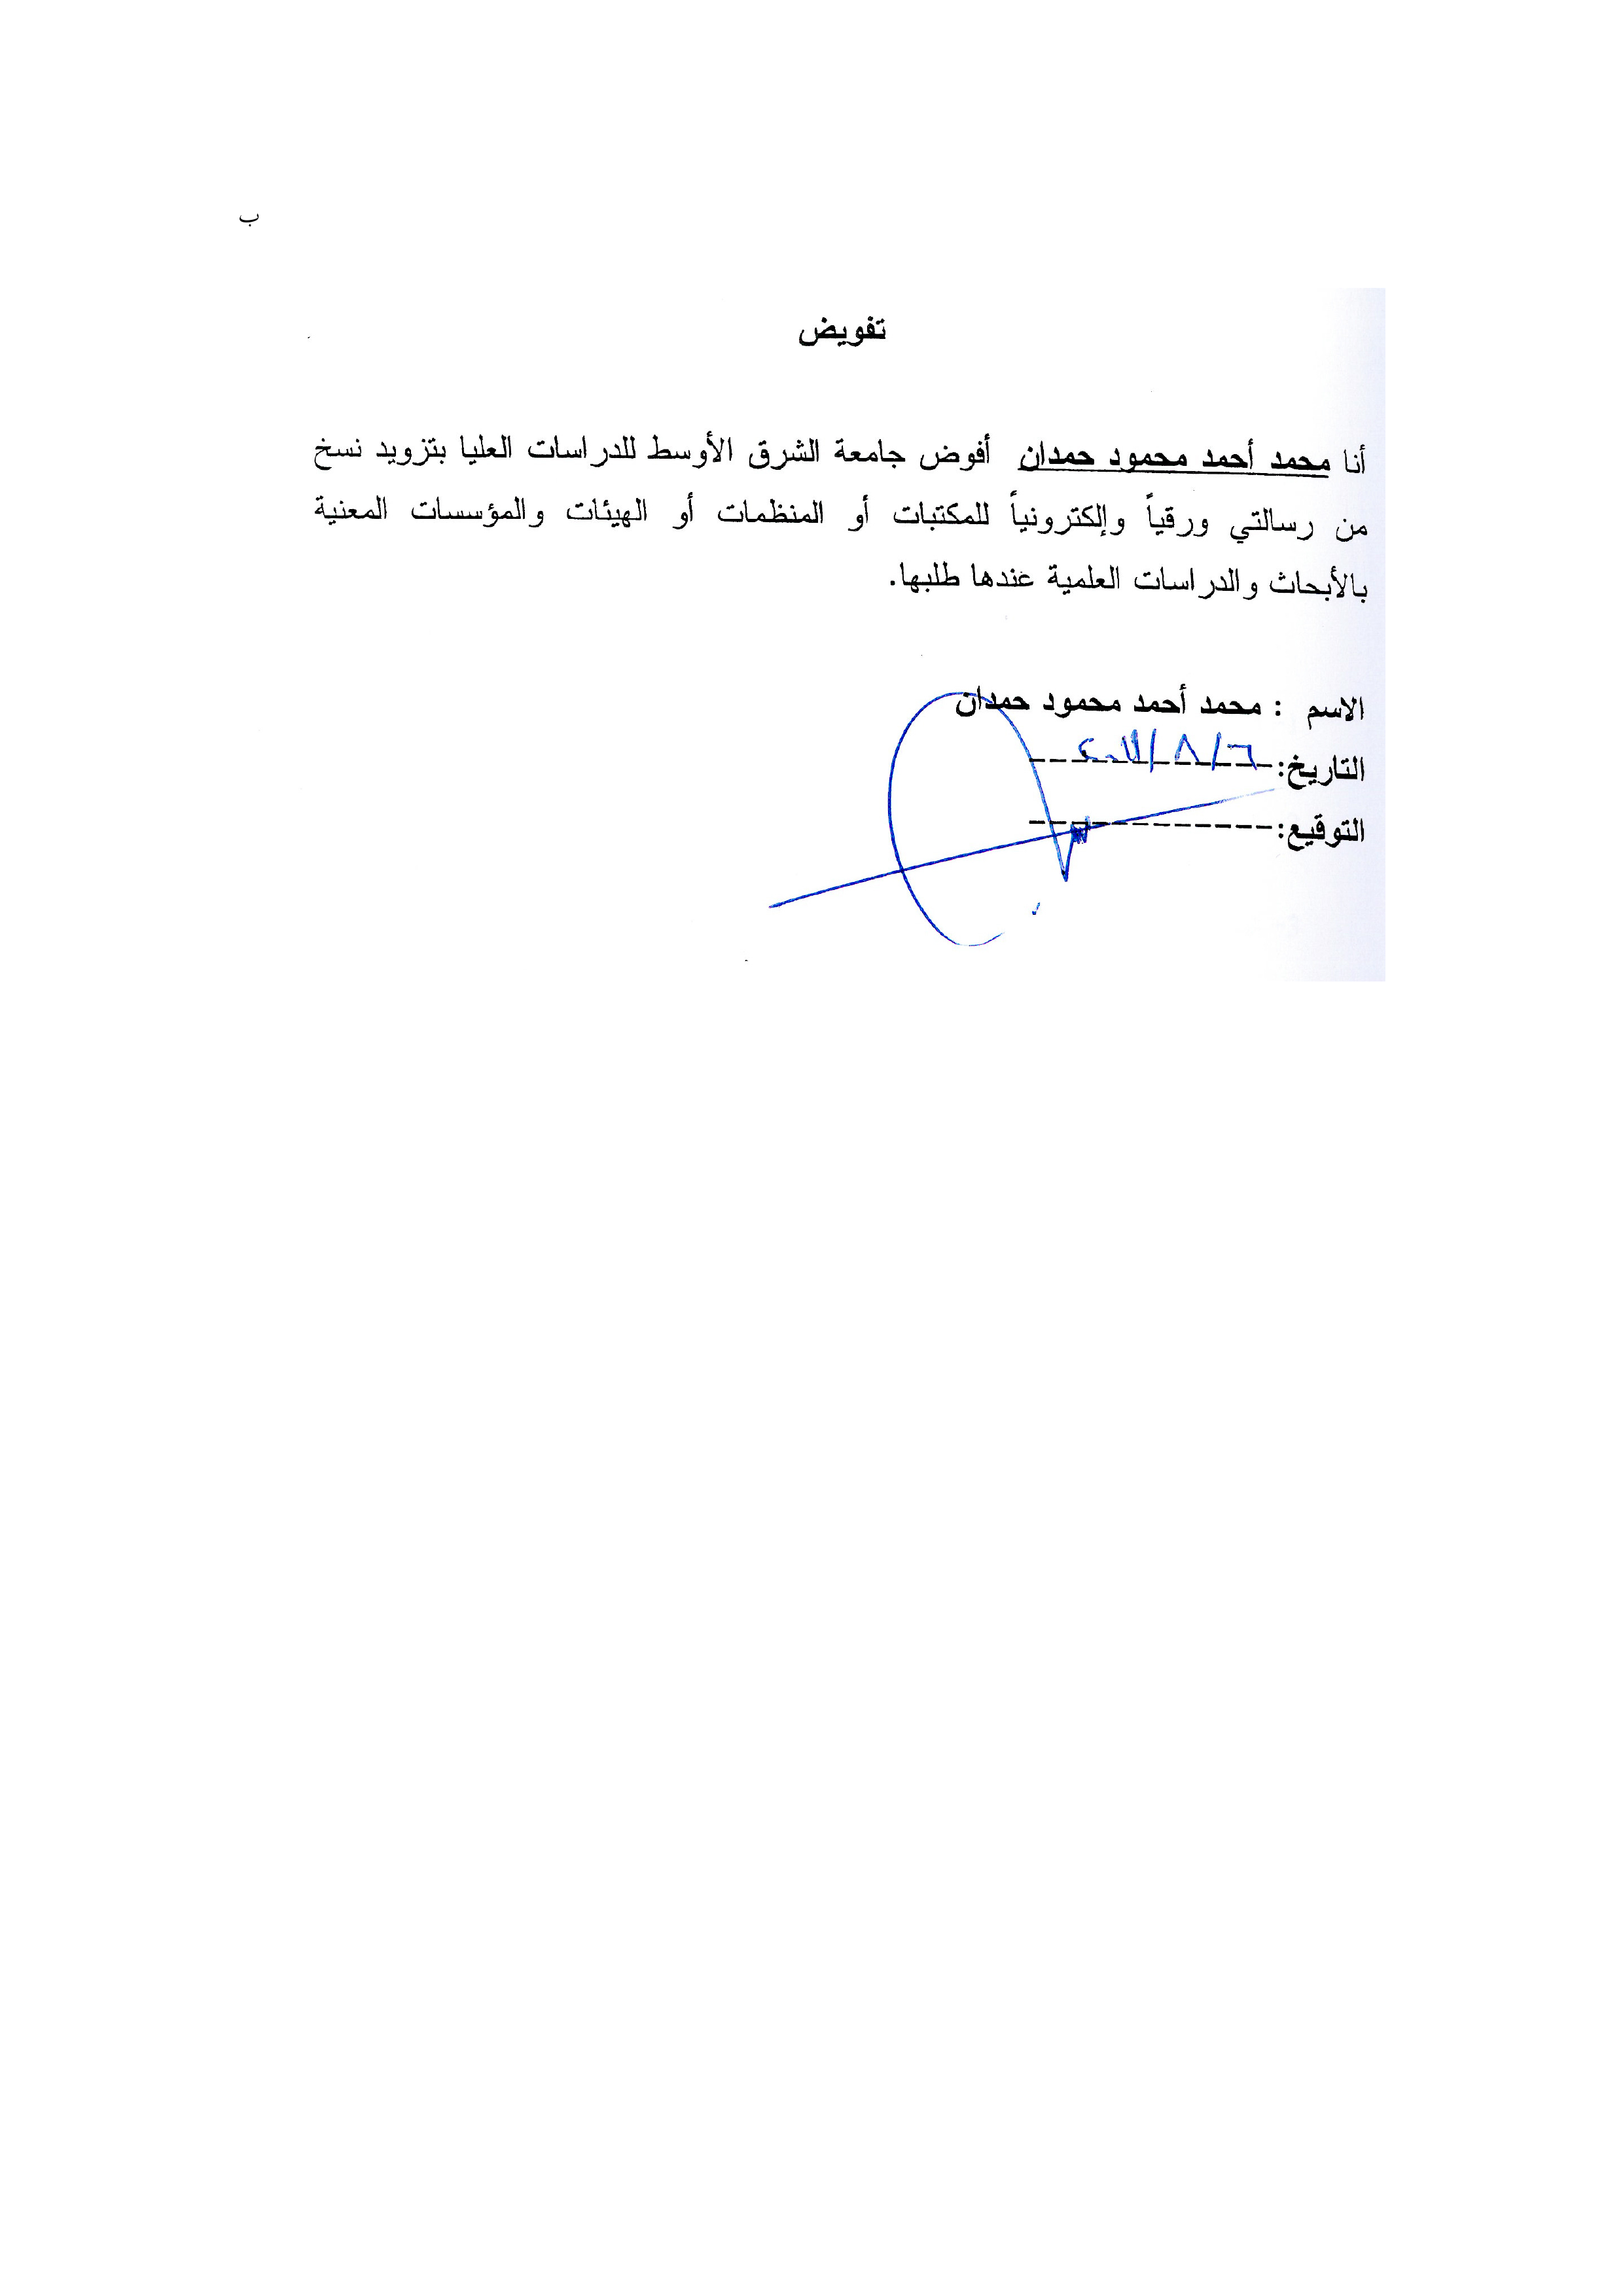 ب
تفويض
أنا محمد أحمد محمود حمدان أفوض جامعة الشرق الأوسط للدراسات العليا بتزويد نسخ
من رسالتي ورقياً وإلكترونياً للمكتبات أو المنظمات أو الهيئات والمؤسسات المعنية
بالأبحاث والدراسات العلمية عندها طلبها.
الاسم : محمد أحمد محمود حمدان
التاريخ: ٦/٨/٢٠١١
التوقيع: